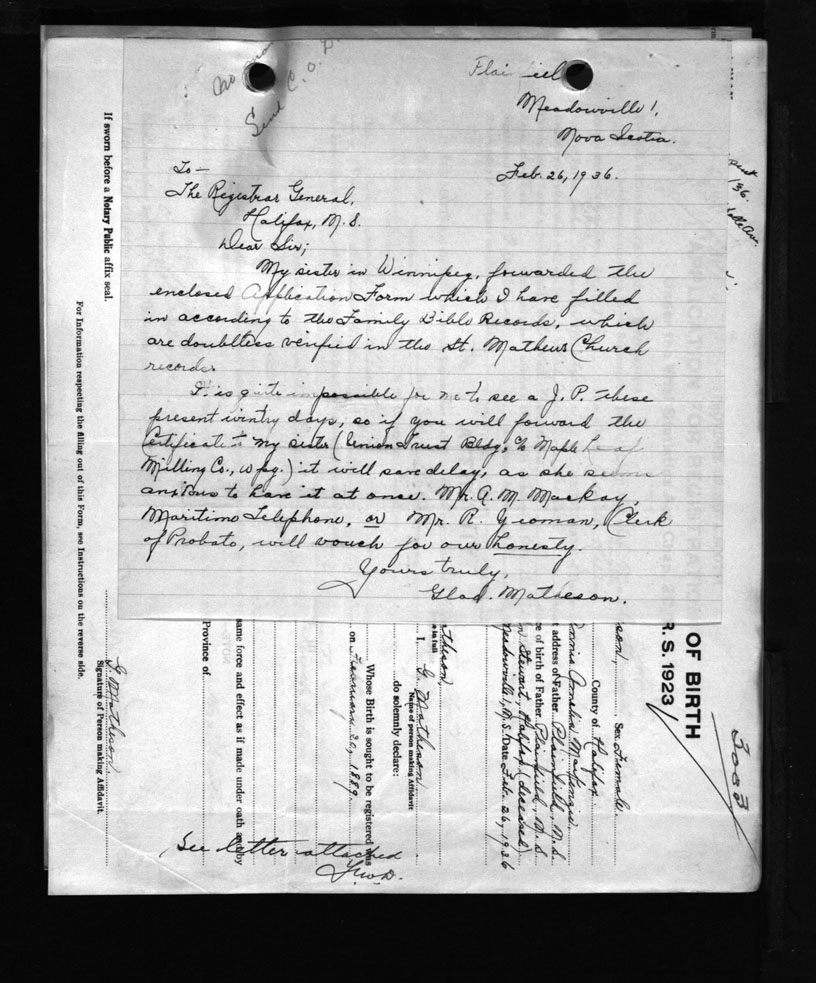 Send C.O.D.
Meadowville!,
Nova Scotia.
Feb. 26, 1936.
To—
The Registrar General,
Halifax, N. S.
Dear Sir;
My sister in Winnipeg, forwarded the
enclosed Application Form which I have filled
in according to the Family Bible Records, which
are doubtless verified in the St. Mathews Church
records.
It is quite impossible for me to see a J. P. these
present wintry days, so if you will forward the
Certificate to my sister (Union Trust Bldg, c/o Maple Leaf
Milling Co., Wpg.) it will save delay, as she seems
anxious to have it at once. Mr. A. M. Mackay,
Maritime Telephone, or Mr. R. Yeoman, Clerk
of Probate, will vouch for our honesty.
Yours truly,
Glad. Matheson.
If sworn before a Notary Public affix seal.
For Information respecting the filling out of this Form, see Instructions on the reverse side.
G. Matheson
Signature of Person making Affidavit.
same force and effect as if made under oath and by
Province of
Whose Birth is sought to be registered was
on 20, 1889.
do solemnly declare:
I, G. Matheson
Name of person making Affidavit
e in full
theson,
See letter attached
Meadowville, N.S. Date Feb. 26, 1936
n Stewart, Halifax (deceased)
ce of birth of Father Plainfield, N. S
t address of Father Plainfield, N. S.
Annie Amelia MacKenzie
County of Halifax
son, Sex Female.
OF BIRTH
R. S. 1923
3003